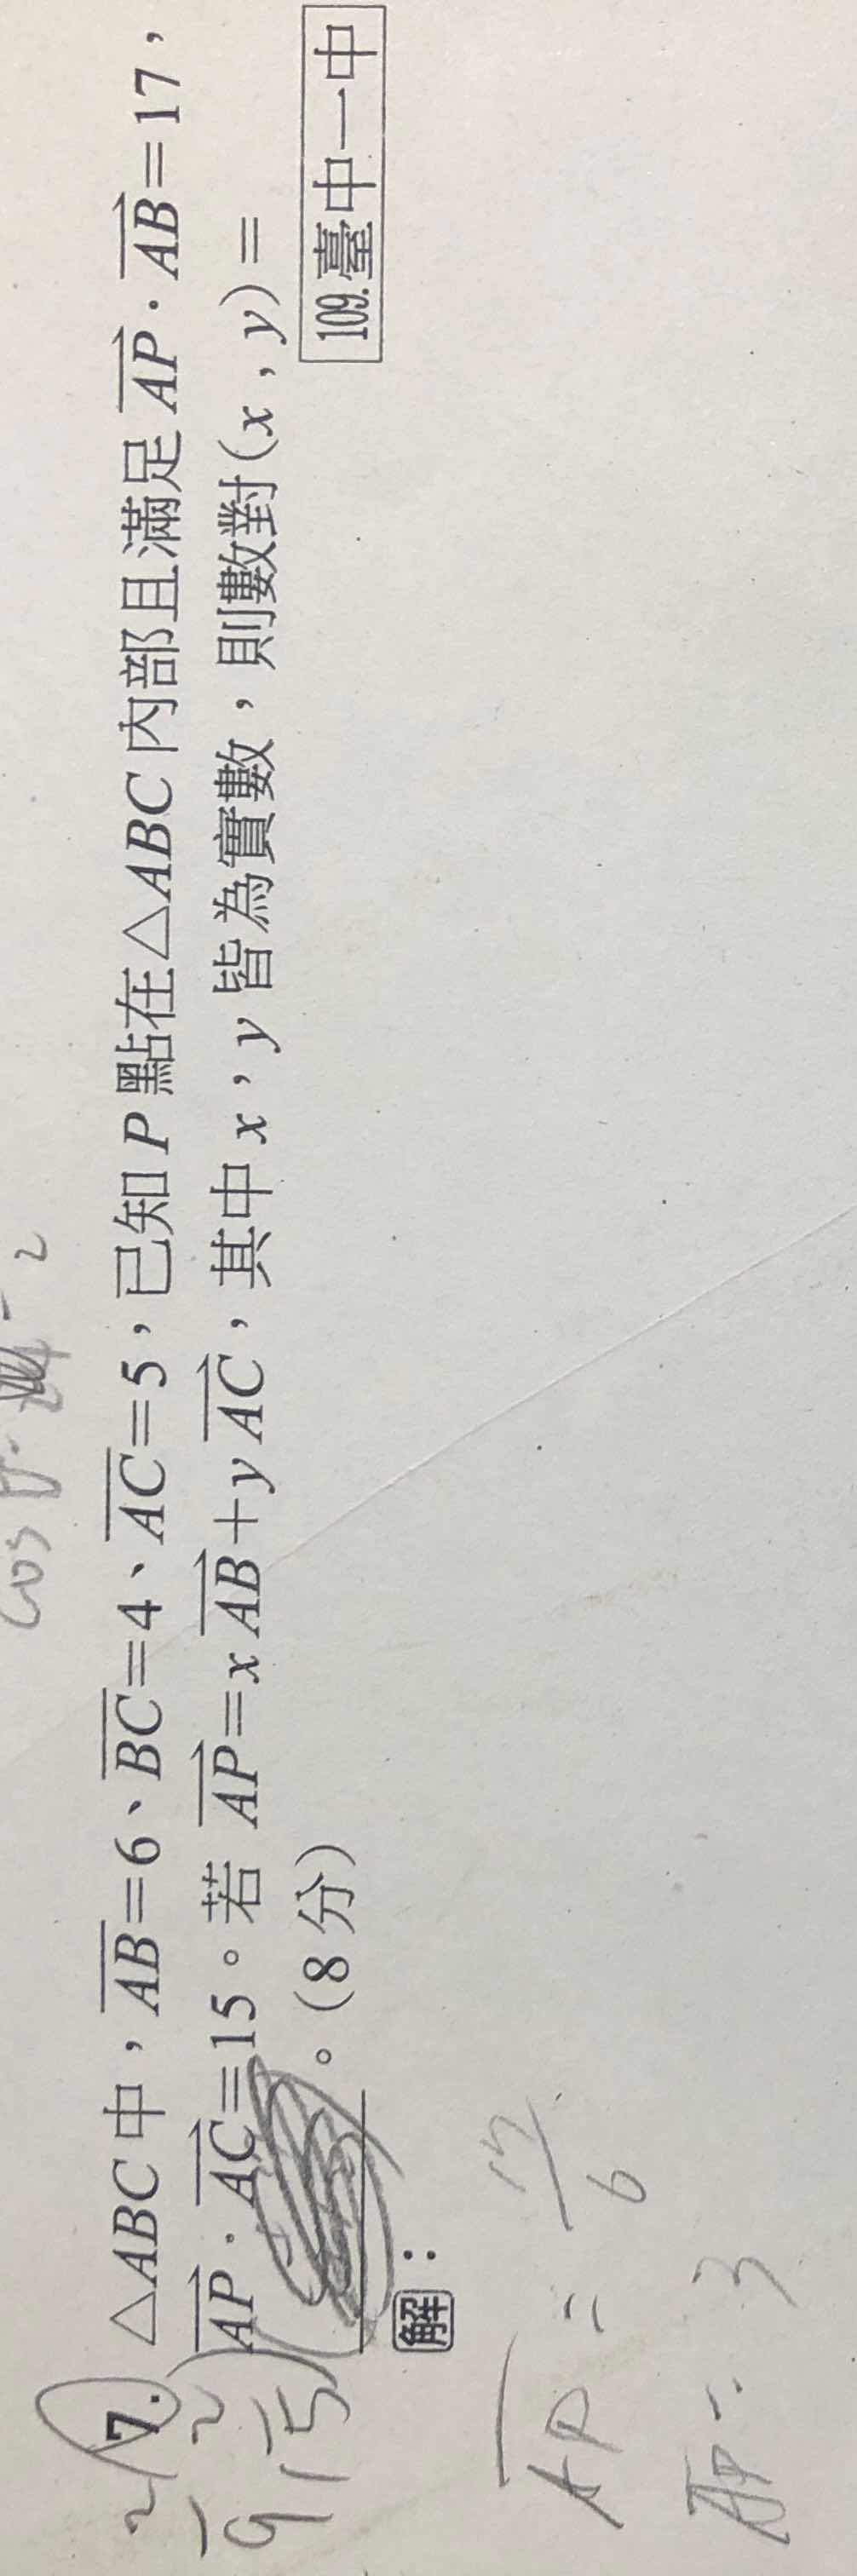 cos
7. △ABC 中，AB=6、BC=4、AC=5，已知 P 點在△ABC 內部且滿足 AP · AB=17，
AP · AC=15。若 AP=xAB+yAC，其中 x，y 皆為實數，則數對(x , y)=
。(8 分)
109.臺中一中
解：
AP = 17/6
AP = 3